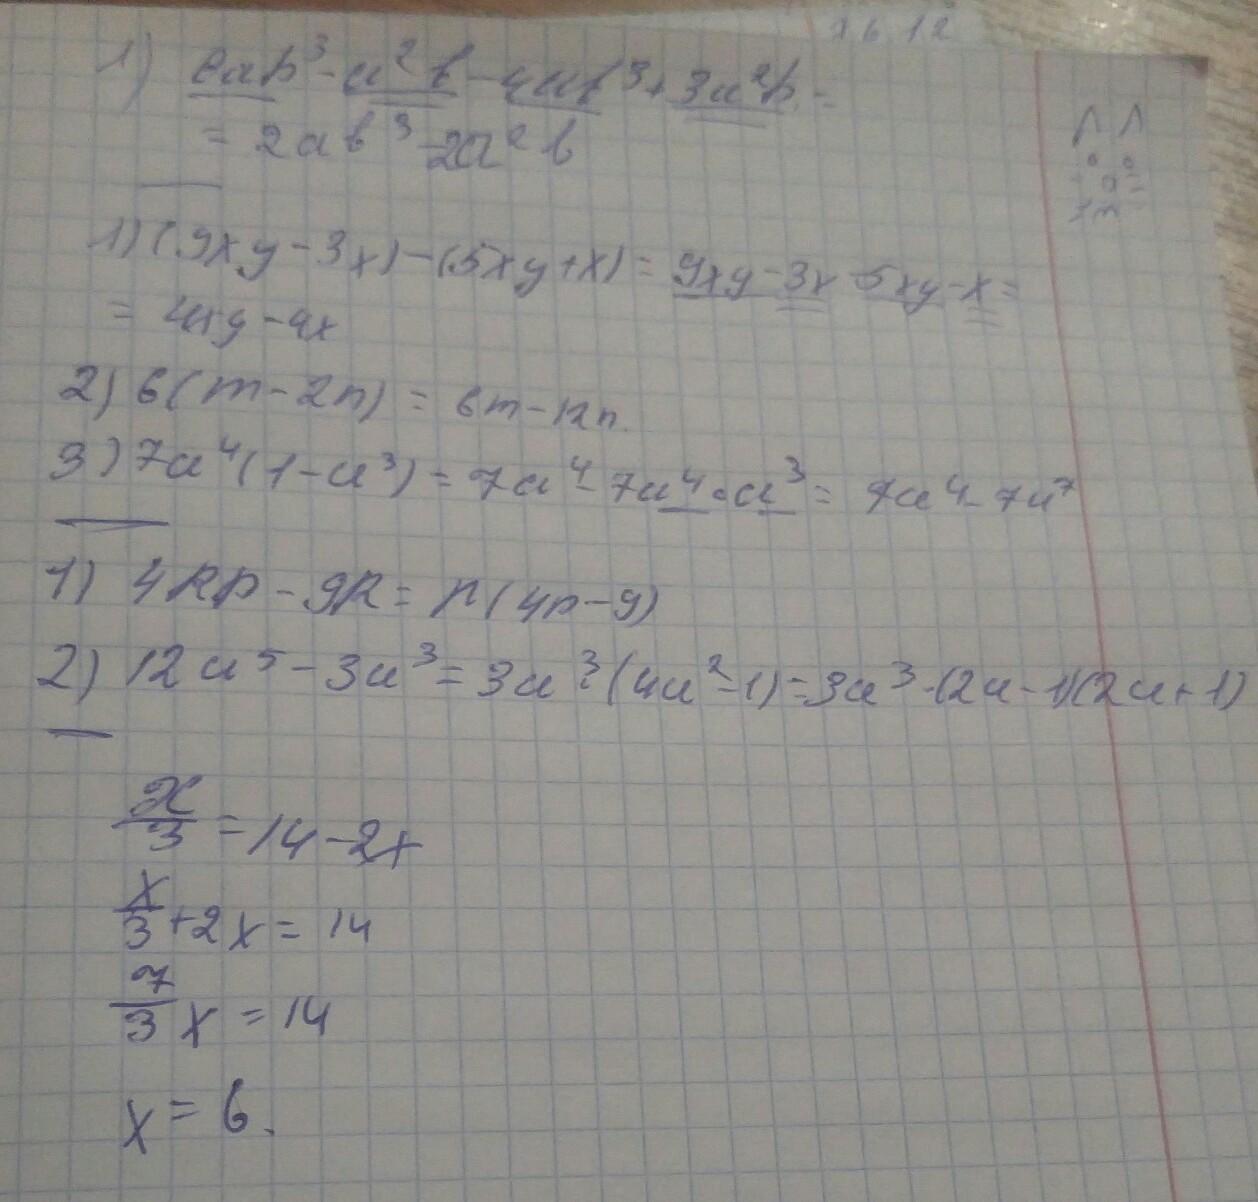 1) 6ab³-a²b-4ab³+3a²b=
= 2ab³-2a²b
1) (9xy-3x)-(5xy+x)=9xy-3x-5xy-x=
= 4xy-4x
2) 6(m-2n)=6m-12n.
3) 7a⁴(1-a³)=7a⁴-7a⁴·a³=7a⁴-7a⁷
1) 4kp-9k=k(4p-9)
2) 12a⁵-3a³=3a³(4a²-1)=3a³·(2a-1)(2a+1)
x/3=14-2x
x/3+2x=14
7/3x=14
x=6.